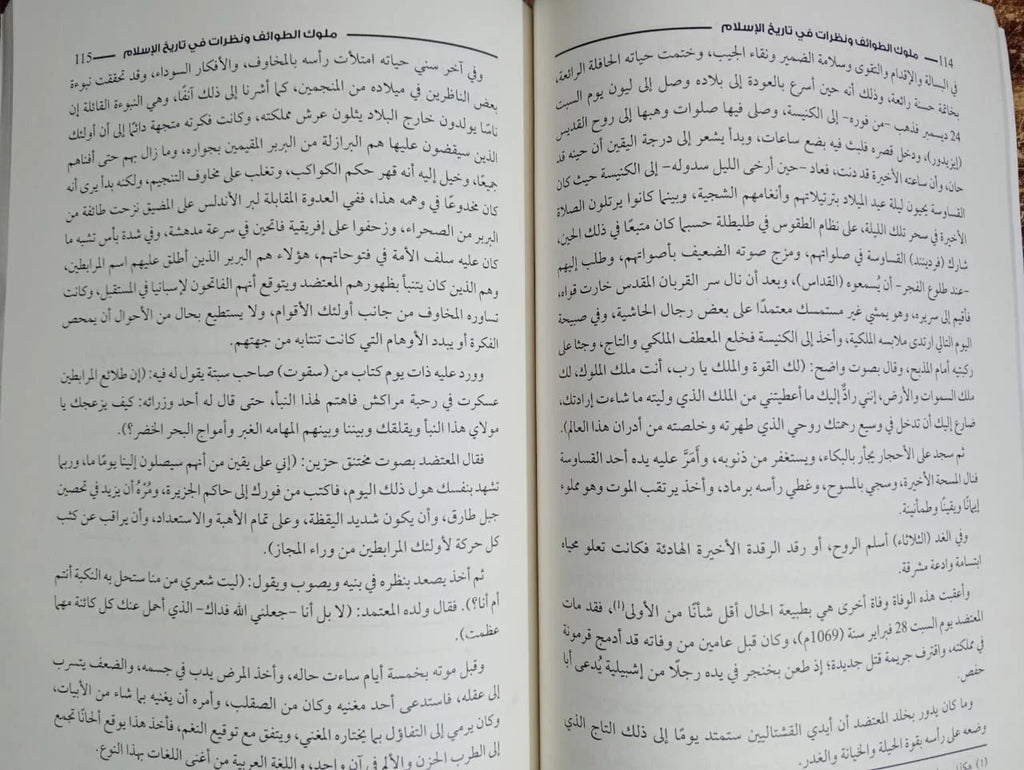 114 — ملوك الطوائف ونظرات في تاريخ الإسلام
في البسالة والإقدام والتقوى وسلامة الضمير ونقاء الجيب، وختمت حياته الحافلة الرائعة،
بخاتمة حسنة رائعة، وذلك أنه حين أسرع بالعودة إلى بلاده وصل إلى ليون يوم السبت
24 ديسمبر فذهب -من فوره- إلى الكنيسة، وصلى فيها صلوات وهبها إلى روح القديس
(إيزيدور)، ودخل قصره فلبث فيه بضع ساعات، وبدأ يشعر إلى درجة اليقين أن حينه قد
حان، وأن ساعته الأخيرة قد دنت، فعاد -حين أرخى الليل سدوله- إلى الكنيسة حيث كان
القساوسة يحيون ليلة عيد الميلاد بترتيلاتهم وأنغامهم الشجية، وبينما كانوا يرتلون الصلاة
الأخيرة في سحر تلك الليلة، على نظام الطقوس في طليطلة حسبما كان متبعًا في ذلك الحين،
شارك (فرديننذ) القساوسة في صلواتهم، ومزج صوته الضعيف بأصواتهم، وطلب إليهم
-عند طلوع الفجر- أن يُسمعوه (القداس)، وبعد أن نال سر القربان المقدس خارت قواه،
فأقيم إلى سريره، وهو يمشي غير مستمسك معتمدًا على بعض رجال الحاشية، وفي صبيحة
اليوم التالي ارتدى ملابسه الملكية، وأخذ إلى الكنيسة فخلع المعطف الملكي والتاج، وجثا على
ركبتيه أمام المذبح، وقال بصوت واضح: (لك القوة والملك يا رب، أنت ملك الملوك، لك
ملك السموات والأرض، إنني رادٌّ إليك ما أعطيتني من الملك الذي وليته ما شاءت إرادتك،
ضارع إليك أن تدخل في وسيع رحمتك روحي الذي طهرته وخلصته من أدران هذا العالم).
ثم سجد على الأحجار يجأر بالبكاء، ويستغفر من ذنوبه، وأَمَرَّ عليه يده أحد القساوسة
فنال المسحة الأخيرة، وسجي بالمسوح، وغطي رأسه برماد، وأخذ يرتقب الموت وهو مملوء
إيمانًا ويقينًا وطمأنينة.
وفي الغد (الثلاثاء) أسلم الروح، أو رقد الرقدة الأخيرة الهادئة فكانت تعلو محياه
ابتسامة وادعة مشرقة.
وأعقبت هذه الوفاة وفاة أخرى هي بطبيعة الحال أقل شأنًا من الأولى(1)، فقد مات
المعتضد يوم السبت 28 فبراير سنة (1069م)، وكان قبل عامين من وفاته قد أدمج قرمونة
في مملكته، واقترف جريمة قتل جديدة؛ إذ طعن بخنجر في يده رجلًا من إشبيلية يُدعى أبا
حفص.
وما كان يدور بخلد المعتضد أن أيدي القشتاليين ستمتد يومًا إلى ذلك التاج الذي
وضعه على رأسه بقوة الحيلة والخيانة والغدر.
ملوك الطوائف ونظرات في تاريخ الإسلام — 115
وفي آخر سني حياته امتلأت رأسه بالمخاوف، والأفكار السوداء، وقد تحققت نبوءة
بعض الناظرين في ميلاده من المنجمين، كما أشرنا إلى ذلك آنفًا، وهي النبوءة القائلة إن
ناسًا يولدون خارج البلاد يثلون عرش مملكته، وكانت فكرته متجهة دائمًا إلى أن أولئك
الذين سيقضون عليها هم البرازلة من البربر المقيمين بجواره، وما زال بهم حتى أفناهم
جميعًا، وخيل إليه أنه قهر حكم الكواكب، وتغلب على مخاوف التنجيم، ولكنه بدأ يرى أنه
كان مخدوعًا في وهمه هذا، ففي العدوة المقابلة لبر الأندلس على المضيق نزحت طائفة من
البربر من الصحراء، وزحفوا على إفريقية فاتحين في سرعة مدهشة، وفي شدة بأس تشبه ما
كان عليه سلف الأمة في فتوحاتهم، هؤلاء هم البربر الذين أطلق عليهم اسم المرابطين،
وهم الذين كان يتنبأ بظهورهم المعتضد ويتوقع أنهم الفاتحون لإسبانيا في المستقبل، وكانت
تساوره المخاوف من جانب أولئك الأقوام، ولا يستطيع بحال من الأحوال أن يمحص
الفكرة أو يبدد الأوهام التي كانت تنتابه من جهتهم.
وورد عليه ذات يوم كتاب من (سقوت) صاحب سبتة يقول له فيه: (إن طلائع المرابطين
عسكرت في رحبة مراكش فاهتم لهذا النبأ، حتى قال له أحد وزرائه: كيف يزعجك يا
مولاي هذا النبأ ويقلقك وبيننا وبينهم المهامه الغبر وأمواج البحر الخضر؟).
فقال المعتضد بصوت مختنق حزين: (إني على يقين من أنهم سيصلون إلينا يومًا ما، وربما
تشهد بنفسك هول ذلك اليوم، فاكتب من فورك إلى حاكم الجزيرة، ومُرْهُ أن يزيد في تحصين
جبل طارق، وأن يكون شديد اليقظة، وعلى تمام الأهبة والاستعداد، وأن يراقب عن كثب
كل حركة لأولئك المرابطين من وراء المجاز).
ثم أخذ يصعد بنظره في بنيه ويصوب ويقول: (ليت شعري من منا ستحل به النكبة أنتم
أم أنا؟). فقال ولده المعتمد: (لا بل أنا -جعلني الله فداك- الذي أحمل عنك كل كائنة مهما
عظمت).
وقبل موته بخمسة أيام ساءت حاله، وأخذ المرض يدب في جسمه، والضعف يتسرب
إلى عقله، فاستدعى أحد مغنيه وكان من الصقلب، وأمره أن يغنيه بما شاء من الأبيات،
وكان يرمي إلى التفاؤل بما يختاره المغني، ويتفق مع توقيع النغم، فأخذ هذا يوقع ألحانًا تجمع
إلى الطرب الحزن والألم في آن واحد، واللغة العربية من أغنى اللغات بهذا النوع.